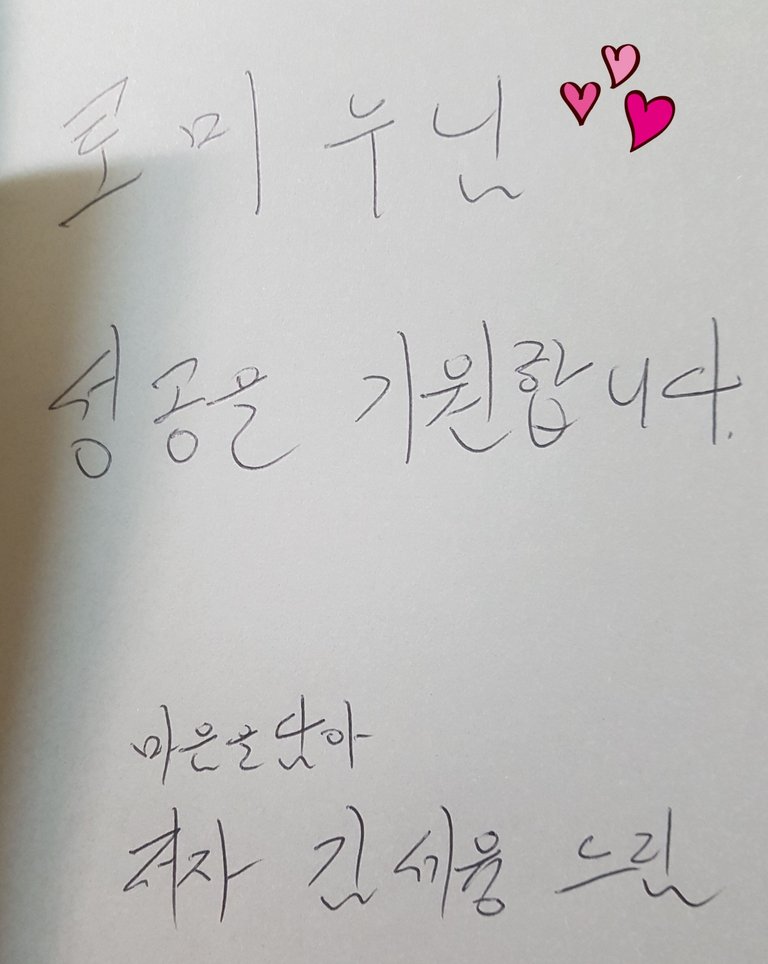 로미 누님
성공을 기원합니다.
마음을 담아
저자 김세용 드림